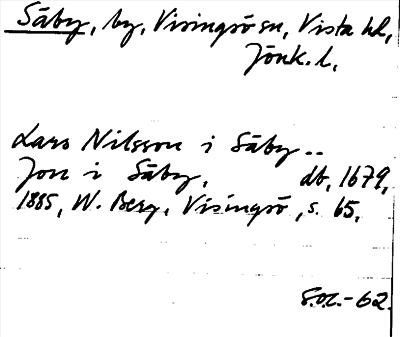 Säby, by, Visingsö sn, Vista hd,
Jönk. l.
Lars Nilsson i Säby ..
Jon i Säby, db, 1679,
1885, W. Berg, Visingsö, s. 65,
-62.